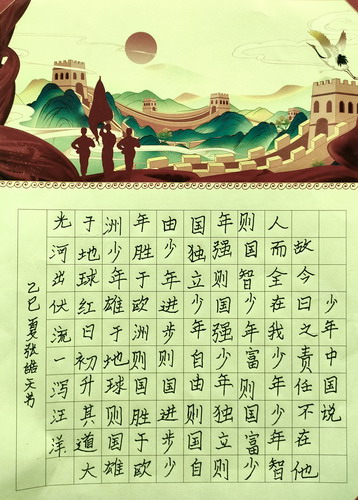 少年中国说
故今日之责任不在他
人而全在我少年少年智
则国智少年富则国富少
年强则国强少年独立则
国独立少年自由则国自
由少年进步则国进步少
年胜于欧洲则国胜于欧
洲少年雄于地球则国雄
于地球红日初升其道大
光河出伏流一泻汪洋
乙巳夏张天书